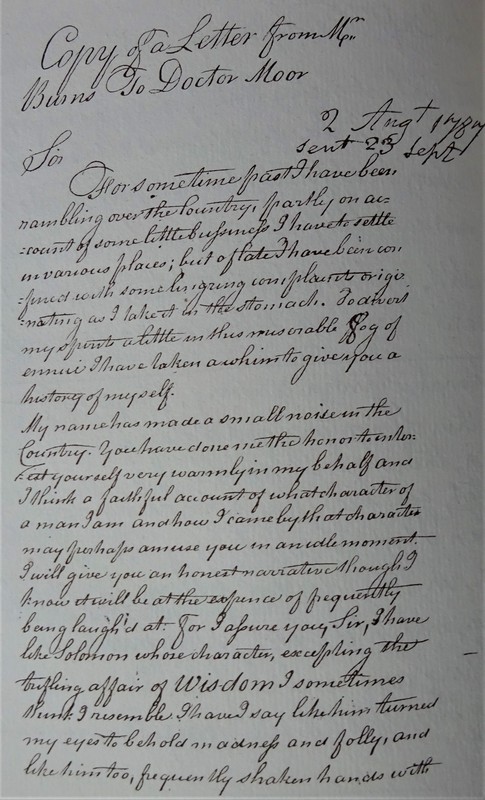 Copy of a Letter from Mr
Burns To Doctor Moor
2 Augt 1787
sent 23 Sept
Sir
For sometime past I have been
rambling over the Country, partly on ac=
=count of some little bussiness I have to settle
in various places; but of late I have been con
=fined with some lingring complaints origi
=nating as I take it in the stomach. To divert
my spirits a little in this miserable fog of
ennui I have taken a whim to give you a
history of myself.
My name has made a small noise in the
Country. You have done me the honor to inter=
=est yourself very warmly in my behalf and
I think a faithful account of what character of
a man I am and how I came by that character
may perhaps amuse you in an idle moment.
I will give you an honest narrative though I
know it will be at the expence of frequently
being laugh'd at. for I assure you, Sir, I have
like Solomon whose character, excepting the
trifling affair of Wisdom I sometimes
think I resemble I have I say like him turned
my eyes to behold madness and folly, and
like him too, frequently shaken hands with